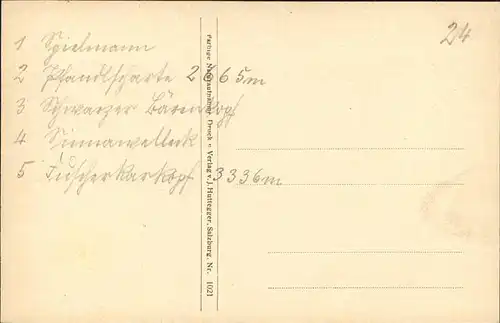 24
1 Spielmann
2 Pfandlscharte 2665m
3 Schwarzer Bärenkopf
4 Sinnawelleck
5 Fuscherkarkopf 3336m
Farbige Naturaufnahme, Druck u Verlag v. J. Huttegger, Salzburg. Nr. 1021